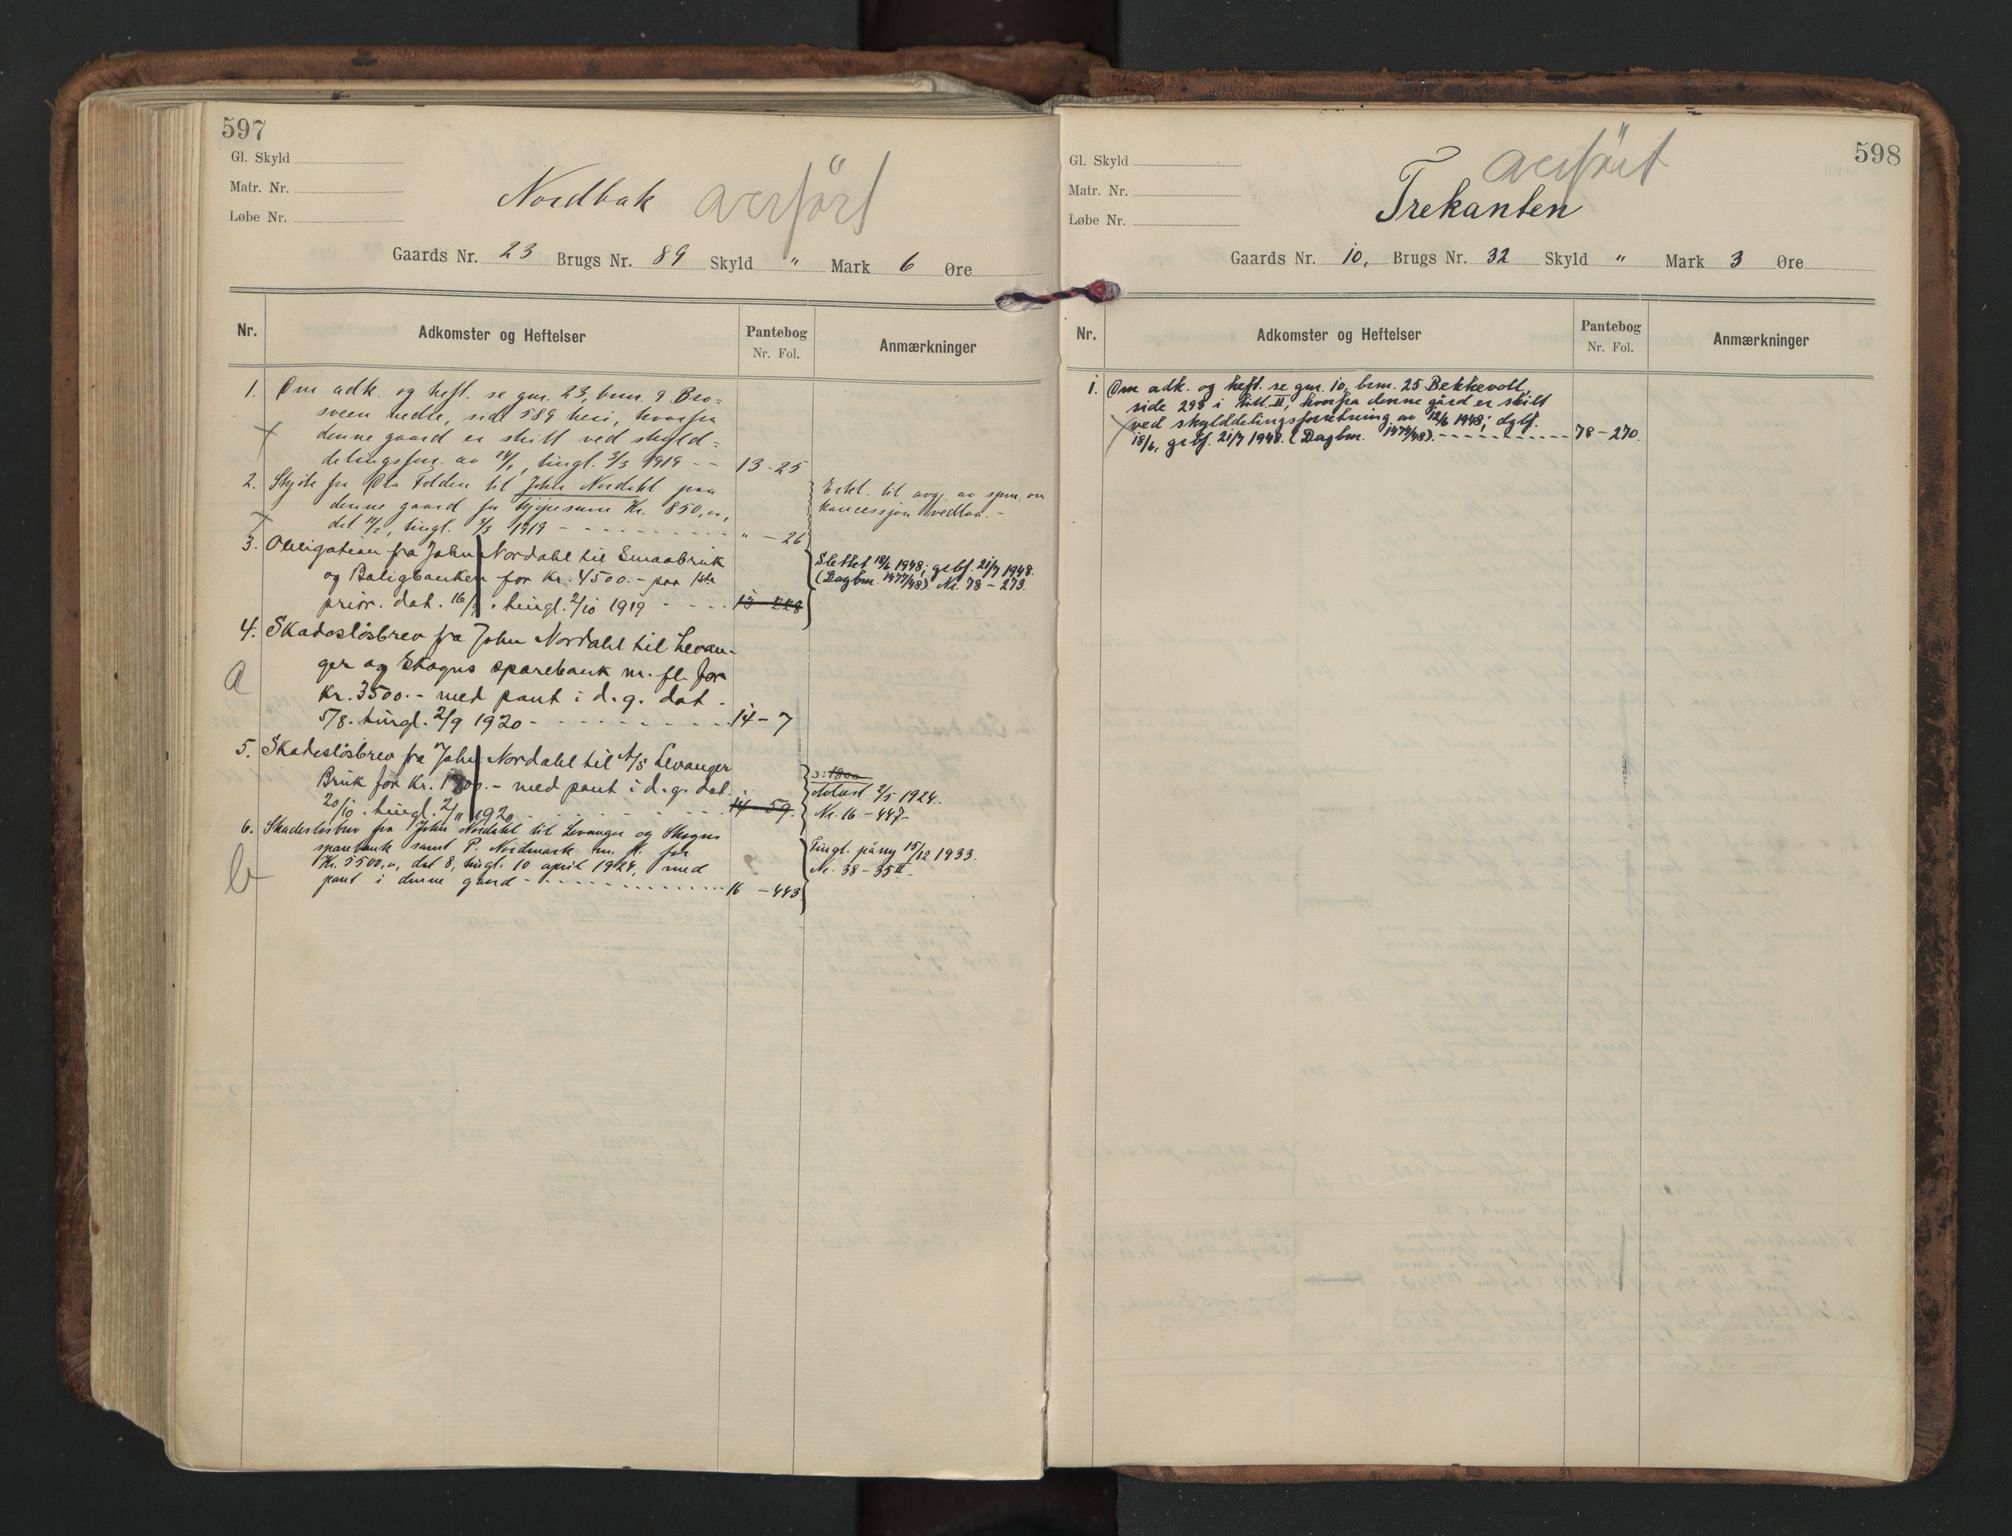 597
Gl. Skyld
Matr. Nr.
Løbe Nr.
Nordbak overført
Gaards Nr. 23 Brugs Nr. 89 Skyld " Mark 6 Øre
Nr. Adkomster og Heftelser Pantebog Nr. Fol. Anmærkninger
1. Om adk. og heft. se gnr. 23, bnr. 9 Bro-
sveen nedre, side 589 heri, hvorfra
denne gaard er skilt ved skyld-
delingsforr. av tingl. 3/3 1919 - - 13-25
2. Skjøte fra Ola Folden til John Nordahl paa
denne gaard for kjøpesum Kr. 850,00,
dat. tingl. 3/3 1919 - - - " - 26
Erkl. til avgj. av spm. om
koncessjon vedlaa. -
3. Obligation fra John Nordahl til Smaabruk
og Boligbanken for kr. 4500.- paa 1ste
prior. dat. 16/ tingl. 2/10 1919 - - - 13-228
Slettet 18/6 1948, grbf. 21/7 1948.
(Dagbnr. 1477/48). Nr. 78-273.
4. Skadesløsbrev fra John Nordahl til Levan-
ger og Skogns sparebank m. fl. for
kr. 3500.- med pant i d. g. dat.
5/8. tingl. 2/9 1920 - - - 14-7
a
5. Skadesløsbrev fra John Nordahl til A/S Levanger
Bruk for kr. 1800.- med pant i d. g. dat.
20/10. tingl. 2/11 1920 14-59.
5: 1800
Avlæst 2/5 1924.
Nr. 16-447-
6. Skadesløsbrev fra John Nordahl til Levanger og Skogns
sparebank samt P. Nordmark m. fl. for
Kr. 5500,00, dat 8, tingl. 10 april 1924, med
pant i denne gaard - - - 16-443
b
Tingl. påny 15/12 1933.
Nr. 38-35II-
598
Gl. Skyld
Matr. Nr.
Løbe Nr.
overført
Trekanten
Gaards Nr. 10, Brugs Nr. 32 Skyld " Mark 3 Øre
Nr. Adkomster og Heftelser Pantebog Nr. Fol. Anmærkninger
1. Om adk. og heft. se gnr. 10, bnr. 25 Bekkevoll,
side 298 i Litt. II, hvorfra denne gård er skilt
ved skylddelingsforretning av 12/6 1948; dgbf.
18/6, grbf. 21/7 1948. (Dagbnr. 1474/48). - - - 78-270.